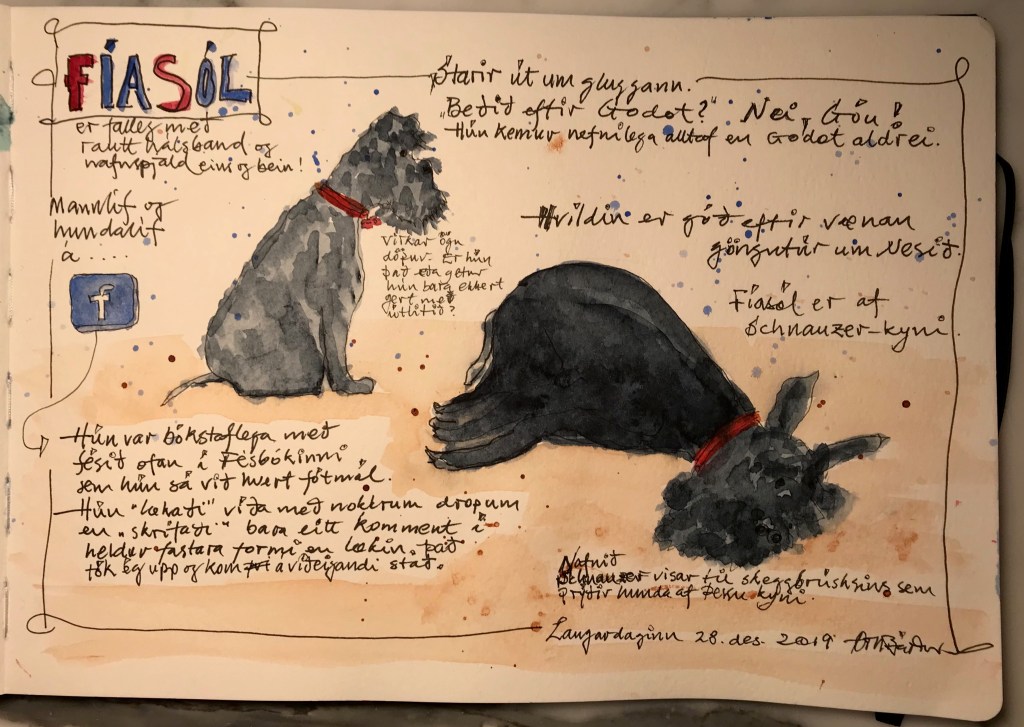 FÍASÓL
er falleg með
rautt hálsband og
nafnspjald eins og bein!
Mannlíf og
hundalíf
á .....
f
Starir út um gluggann.
"Beðið eftir Godot?" Nei, Góu!
Hún kemur nefnilega alltaf en Godot aldrei.
Virkar ögn
döpur. Er hún
það eða getur
hún bara ekkert
gert með
útlitið?
Hvíldin er góð eftir vænan
göngutúr um Nesið.
Fíasól er af
Schnauzer-kyni.
Hún var bókstaflega með
fésið ofan í Fésbókinni
sem hún sá við hvert fótmál.
Hún "lækaði" víða með nokkrum dropum
en "skrifaði" bara eitt komment í
heldur fastara formi en lækin. Það
tók ég upp og kom á viðeigandi stað.
Nafnið
Schnauzer vísar til skeggbrúsksins sem
prýðir hunda af þessu kyni.
Laugardaginn 28. des. 2019